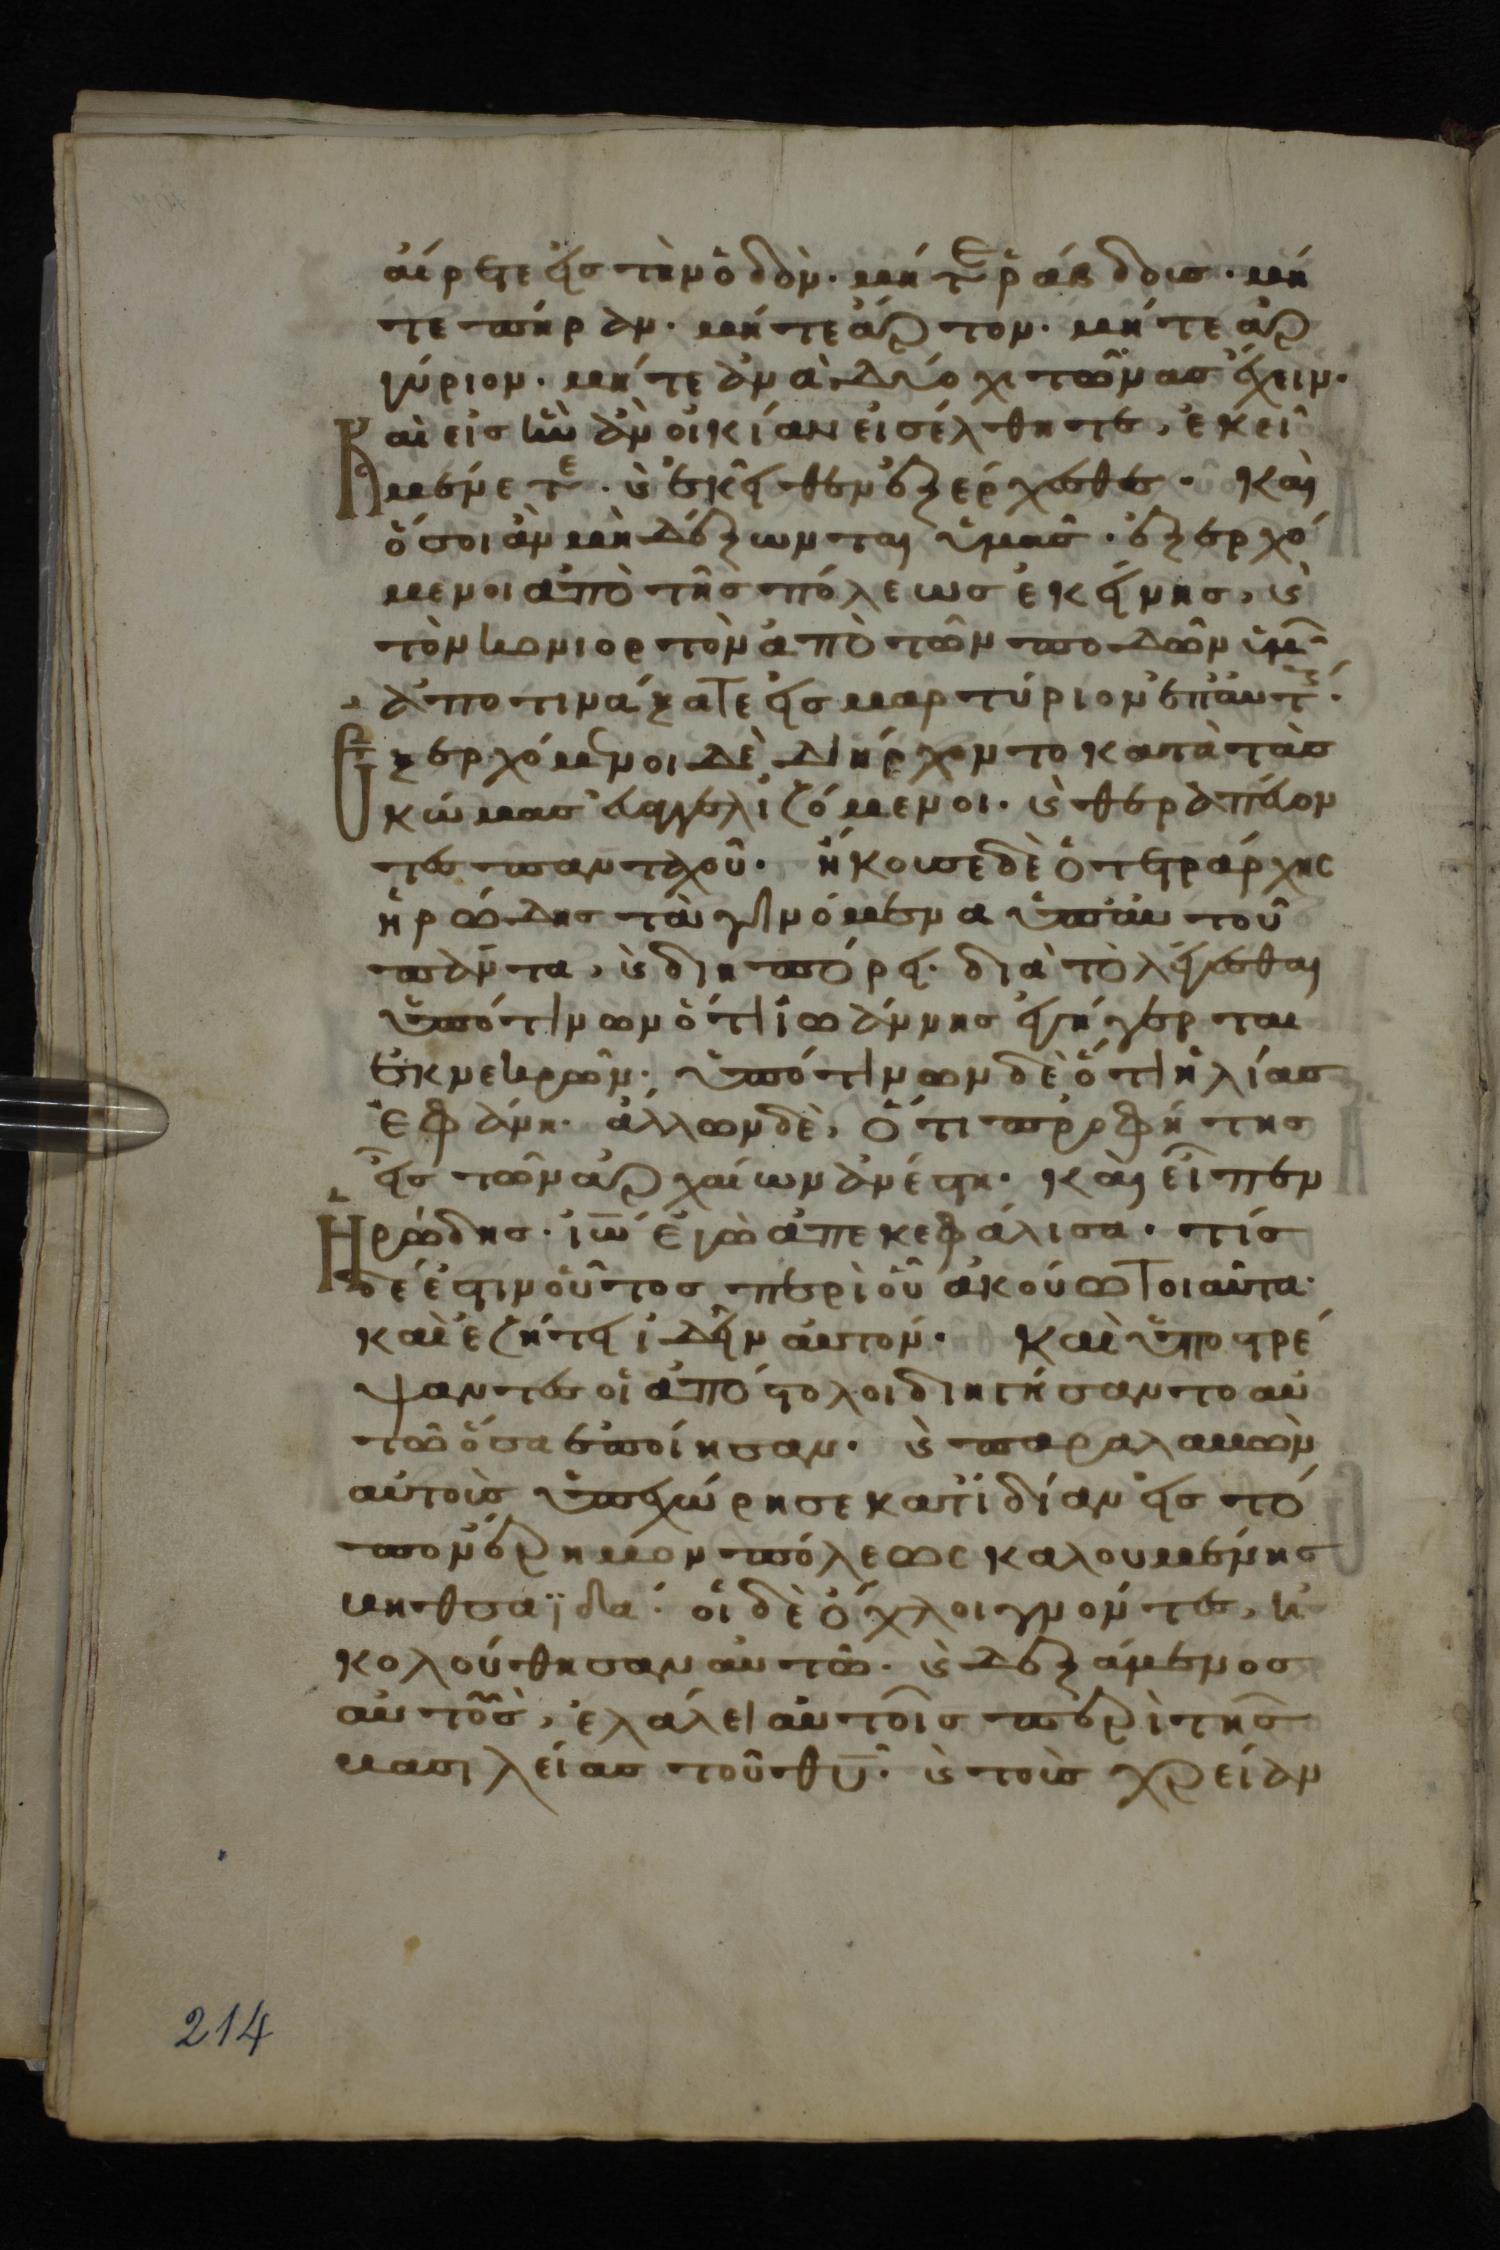 αίρετε εἰς τὴν ὁδόν· μήτε ῥάβδους· μή
τε πήραν· μήτε ἄρτον· μήτε ἀρ
γύριον· μήτε ἀνὰ δύο χιτῶνας ἔχειν·
Καὶ εἰς ἣν ἂν οἰκίαν εἰσέλθητε, ἐκεῖ
μένετε· καὶ ἐκεῖθεν ἐξέρχεσθε· Καὶ
ὅσοι ἂν μὴ δέξωνται ὑμᾶς· ἐξερχό
μενοι ἀπὸ τῆς πόλεως ἐκείνης, καὶ
τὸν κονιορτὸν ἀπὸ τῶν ποδῶν ὑμῶν
ἀποτινάξατε εἰς μαρτύριον ἐπ' αὐτούς·
Ἐξερχόμενοι δὲ διήρχοντο κατὰ τὰς
κώμας εὐαγγελιζόμενοι· καὶ θεραπεύον
τες πανταχοῦ· ἤκουσε δὲ ὁ τετράρχης
ἡρώδης τὰ γινόμενα ὑπ' αὐτοῦ
πάντα, καὶ διηπόρει· διὰ τὸ λέγεσθαι
ὑπό τινων ὅτι ἰωάννης ἐγήγερται
ἐκ νεκρῶν· ὑπό τινων δὲ ὅτι ἠλίας
ἐφάνη· ἄλλων δὲ, ὅτι προφήτης
εἷς τῶν ἀρχαίων ἀνέστη· καὶ εἶπεν
Ἡρώδης· ἰω̅ ἐγὼ ἀπεκεφάλισα· τίς
δέ ἐστιν οὗτος περὶ οὗ ἀκούω τοιαῦτα·
καὶ ἐζήτει ἰδεῖν αὐτόν· Καὶ ὑποστρέ
ψαντες οἱ ἀπόστολοι διηγήσαντο αὐ
τῷ ὅσα ἐποίησαν· καὶ παραλαβὼν
αὐτοὺς ὑπεχώρησε κατ' ἰδίαν εἰς τό
πον ἔρημον πόλεως καλουμένης
βηθσαϊδά· οἱ δὲ ὄχλοι γνόντες, ἠ
κολούθησαν αὐτῷ· καὶ δεξάμενος
αὐτοὺς, ἐλάλει αὐτοῖς περὶ τῆς
βασιλείας τοῦ θυ̅· καὶ τοὺς χρείαν
214